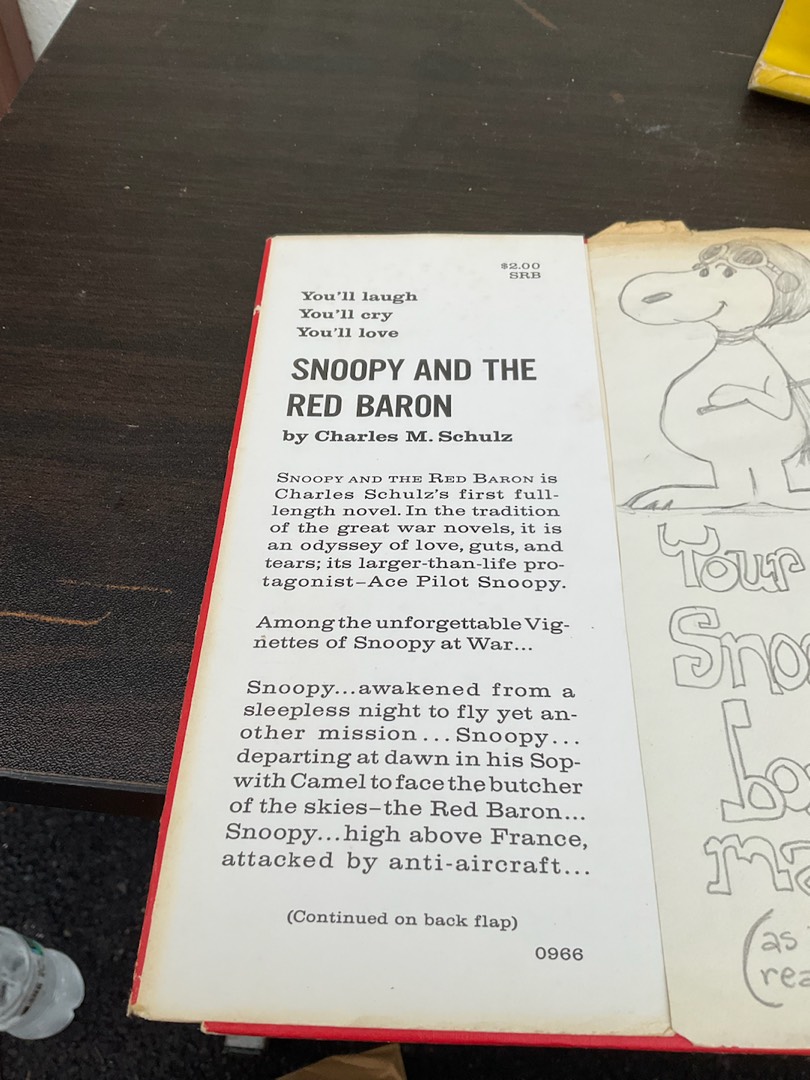 $2.00
SRB
You'll laugh
You'll cry
You'll love
SNOOPY AND THE
RED BARON
by Charles M. Schulz
SNOOPY AND THE RED BARON is
Charles Schulz's first full-
length novel. In the tradition
of the great war novels, it is
an odyssey of love, guts, and
tears; its larger-than-life pro-
tagonist–Ace Pilot Snoopy.
Among the unforgettable Vig-
nettes of Snoopy at War...
Snoopy...awakened from a
sleepless night to fly yet an-
other mission...Snoopy...
departing at dawn in his Sop-
with Camel to face the butcher
of the skies–the Red Baron...
Snoopy...high above France,
attacked by anti-aircraft...
(Continued on back flap)
0966
Your
(as